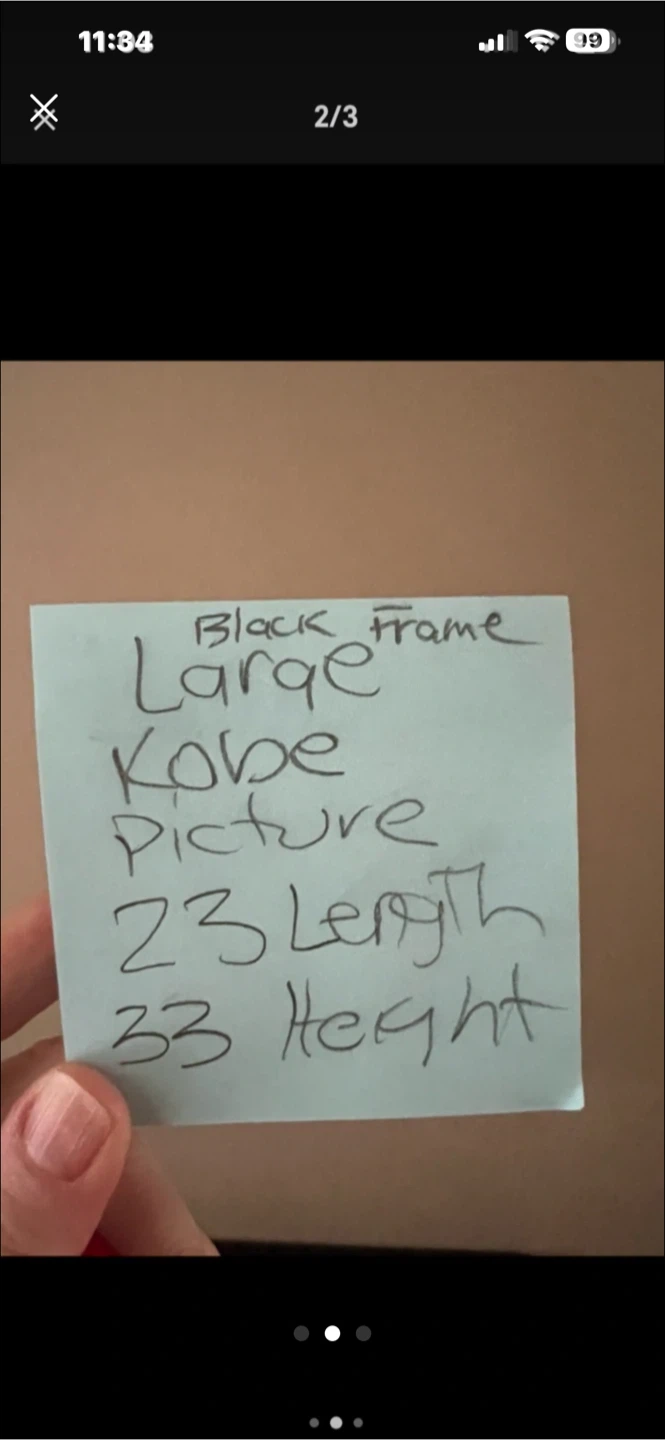 11:34
99
2/3
Black Frame
Large
Kobe
Picture
23 Length
33 Height